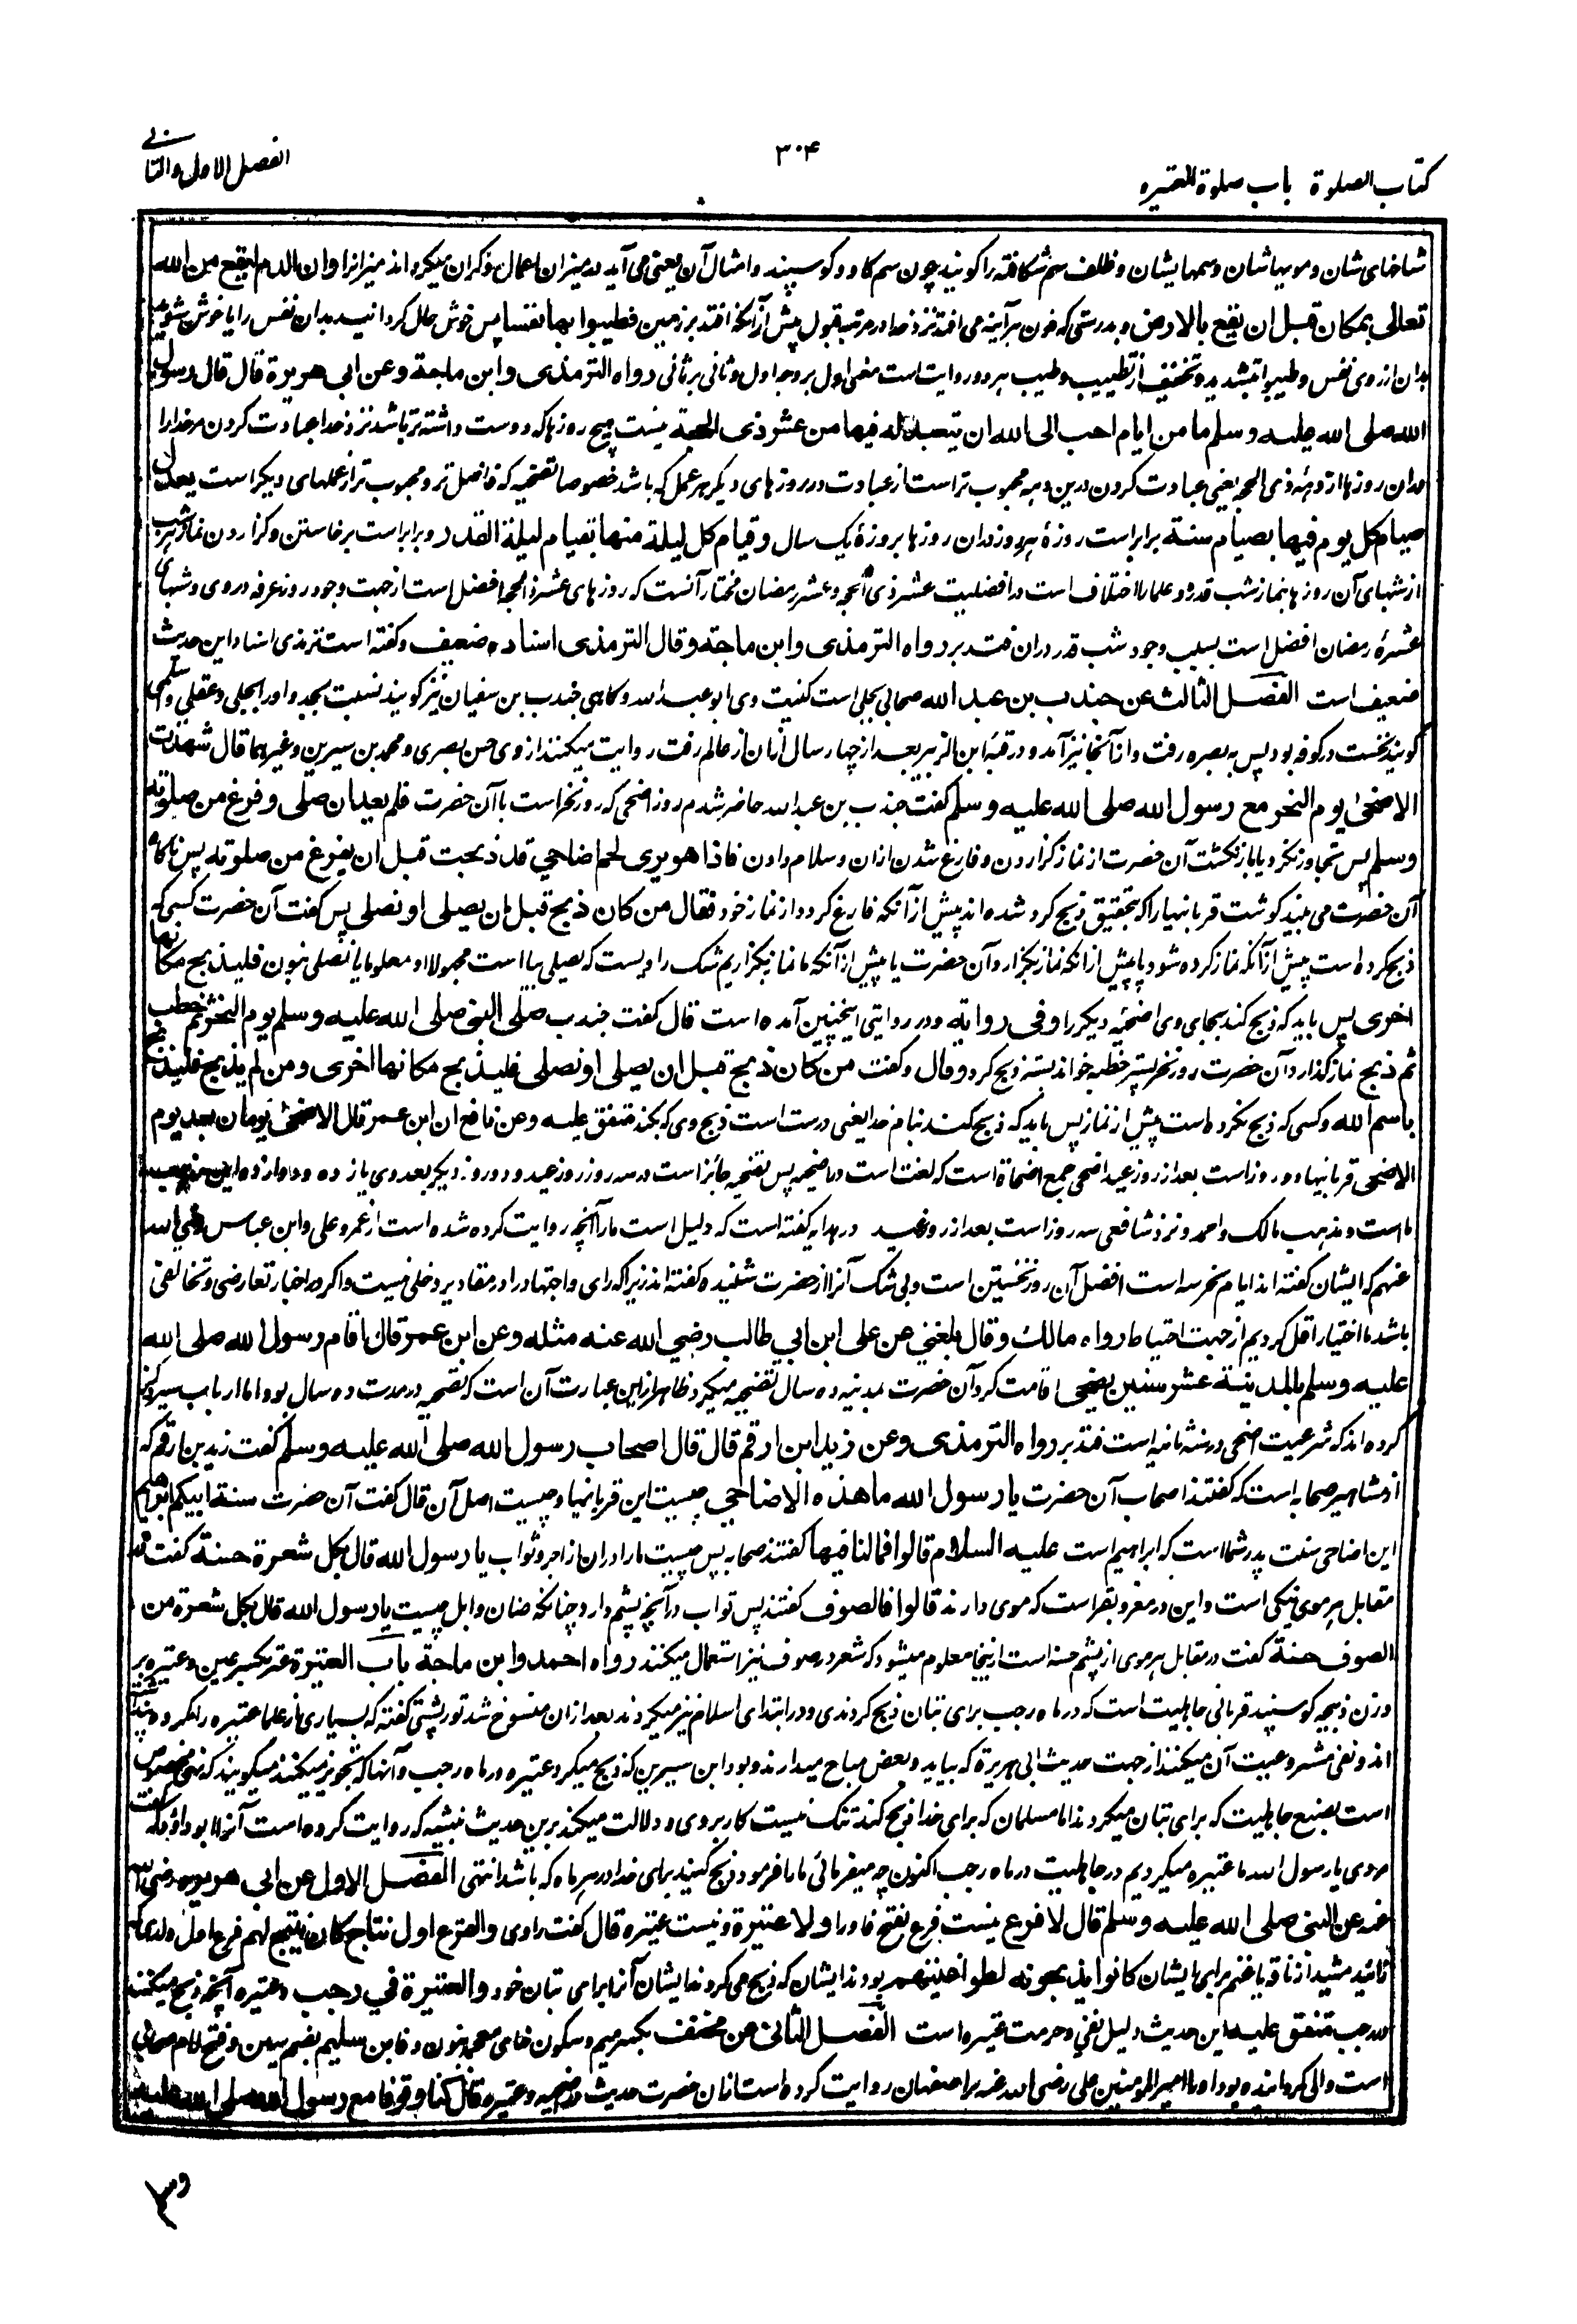 کتاب الصلوة باب صلوة العتیره
۳۰۴
الفصل الاول والثانی
شاخهای شان و مویهاشان و سمهایشان و ظلف سم شکافته را گویند چون سم گاو و گوسپند و امثال آن یعنی می آید در میزان اعمال وان الدم لیقع من الله
تعالی بمکان قبل ان یقع بالارض و بدرستی که خون هر آینه می افتد نزد خدا در مرتبه قبول پیش از آنکه افتد بر زمین فطیبوا بها نفسا پس خوش حال گردانید بدان نفس را یا خوش شوید
بدان از روی نفس و طیبوا بتشدید و تخفیف از تطییب و طیب هر دو روایت است معنی اول بر وجه اول و ثانی بر ثانی رواه الترمذی وابن ماجة وعن ابی هریرة قال قال رسول
الله صلی الله علیه وسلم ما من ایام احب الی الله ان یتعبد له فیها من عشر ذی الحجة نیست هیچ روزها که دوست داشته تر باشد نزد خدا عبادت کردن مر خدا را
دران روزها از دهه ذی الحجه یعنی عبادت کردن درین دهه محبوب تر است از عبادت در روزهای دیگر هر عمل که باشد خصوصا تضحیه که فاضل تر و محبوب تر از عملهای دیگر است یعدل
صیام کل یوم فیها بصیام سنة برابر است روزهٔ هر روز دران روزها بروزهٔ یک سال وقیام کل لیلة منها بقیام لیلة القدر و برابر است برخاستن و گزاردن نماز هر شب
از شبهای آن روزها بنماز شب قدر و علما را اختلاف است در افضلیت عشر ذی الحجه و عشر رمضان مختار آنست که روزهای عشر ذی الحجه افضل است از جهت وجود روز عرفه در وی و شبهای
عشرهٔ رمضان افضل است بسبب وجود شب قدر دران فتدبر رواه الترمذی وابن ماجة وقال الترمذی اسناده ضعیف و گفته است ترمذی اسناد این حدیث
ضعیف است الفصل الثالث عن جندب بن عبد الله صحابی بجلی است کنیت وی ابو عبد الله و گاهی جندب بن سفیان نیز گویند نسبت بجد و او را بجلی و عقلی و
گویند نخست در کوفه بود پس به بصره رفت و از آنجا نیز آمد و در فتنهٔ ابن الزبیر بعد از چهار سال ازان از عالم رفت روایت میکنند از وی حسن بصری و محمد بن سیرین و غیرهما قال شهدت
الاضحی یوم النحر مع رسول الله صلی الله علیه وسلم گفت جندب بن عبد الله حاضر شدم روز اضحی که روز نحر است با آن حضرت فلم یعد ان صلی وفرغ من صلوته
وسلم پس تجاوز نکرد یا باز نگشت آن حضرت از نماز گزاردن و فارغ شدن ازان و سلام دادن فاذا هو یری لحم اضاحی قد ذبحت قبل ان یفرغ من صلوته پس ناگاه
آن حضرت می بیند گوشت قربانیها را که بتحقیق ذبح کرده شده اند پیش از آنکه فارغ گردد از نماز خود فقال من کان ذبح قبل ان یصلی او نصلی پس گفت آن حضرت کسی که
ذبح کرده است پیش از آنکه نماز کرده شود یا پیش از آنکه نماز بگزارد آن حضرت یا پیش از آنکه ما نماز بگزاریم شک راویست که یصلی بیا است مجهولا او معلوما یا نصلی بنون فلیذبح مکانها
اخری پس باید که ذبح کند بجای وی اضحیهٔ دیگر را وفی روایة و در روایتی اینچنین آمده است قال گفت جندب صلی النبی صلی الله علیه وسلم یوم النحر ثم خطب
ثم ذبح نماز گذارد آن حضرت روز نحر پستر خطبه خواند پستر ذبح کرد وقال و گفت من کان ذبح قبل ان یصلی او نصلی فلیذبح مکانها اخری ومن لم یذبح فلیذبح
باسم الله و کسی که ذبح نکرده است پیش از نماز پس باید که ذبح کند بنام خدا یعنی درست است ذبح وی که بکند متفق علیه وعن نافع ان ابن عمر قال الاضحی یومان بعد یوم
الاضحی قربانیها دو روز است بعد از روز عید اضحی جمع اضحاة است که لغت است در اضحیه پس تضحیه جائز است در سه روز روز عید و دو روز دیگر بعد وی یازده و دوازده این مذهب
ما است و مذهب مالک و احمد و نزد شافعی سه روز است بعد از روز عید در هدایه گفته است که دلیل است ما را آنچه روایت کرده شده است از عمر و علی و ابن عباس رضی الله
عنهم که ایشان گفته اند ایام نحر سه است افضل آن روز نخستین است و بی شک آنرا از حضرت شنیده گفته اند زیرا که رای و اجتهاد را در مقادیر دخلی نیست و اگر در اخبار تعارضی و تخالفی
باشد ما اختیار اقل کردیم از جهت احتیاط رواه مالک وقال بلغنی عن علی ابن ابی طالب رضی الله عنه مثله وعن ابن عمر قال اقام رسول الله صلی الله
علیه وسلم بالمدینة عشر سنین یضحی اقامت کرد آن حضرت بمدینه ده سال تضحیه میکرد ظاهر ازین عبارت آن است که تضحیه در مدت ده سال بود اما ارباب سیر ذکر
کرده اند که شرعیت اضحی در سنه ثانیه است فتدبر رواه الترمذی وعن زید ابن ارقم قال قال اصحاب رسول الله صلی الله علیه وسلم گفت زید بن ارقم که
از مشاهیر صحابه است که گفتند اصحاب آن حضرت یا رسول الله ما هذه الاضاحی چیست این قربانیها و چیست اصل آن قال گفت آن حضرت سنة ابیکم ابراهیم
این اضاحی سنت پدر شما است که ابراهیم است علیه السلام قالوا فما لنا فیها گفتند صحابه پس چیست ما را دران از اجر و ثواب یا رسول الله قال بکل شعرة حسنة گفت در
مقابل هر موی نیکی است و این در معز و بقر است که موی دارند قالوا فالصوف گفتند پس ثواب در آنچه پشم دارد چنانکه ضان و ابل چیست یا رسول الله قال بکل شعرة من
الصوف حسنة گفت در مقابل هر موی از پشم حسنه است ازینجا معلوم میشود که شعر در صوف نیز استعمال میکنند رواه احمد وابن ماجة باب العتیرة عتر بکسر عین و عتیره بر
وزن ذبیحه گوسپند قربانی جاهلیت است که در ماه رجب برای بتان ذبح کردندی و در ابتدای اسلام نیز میکردند بعد ازان منسوخ شد تورپشتی گفته که بسیاری از علما عتیره را مکروه
اند و نفی مشروعیت آن میکنند از جهت حدیث ابی هریرة که بیاید و بعض مباح میدارند و بود ابن سیرین که ذبح میکرد عتیره در ماه رجب و آنها که تجویز میکنند میگویند که نهی مخصوص
است بصنع جاهلیت که برای بتان میکردند اما مسلمان که برای خدا ذبح کند تنگ نیست کار بر وی و دلالت میکند برین حدیث نبیشه که روایت کرده است آنرا ابو داؤد که گفت
مردی یا رسول الله ما عتیره میکردیم در جاهلیت در ماه رجب اکنون چه میفرمائی ما را فرمود ذبح کنید برای خدا در هر ماه که باشد انتهی الفصل الاول عن ابی هریرة رضی الله
عنه عن النبی صلی الله علیه وسلم قال لا فرع نیست فرع بفتح فا و را ولا عتیرة و نیست عتیره قال گفت راوی والفرع اول نتاج کان ینتج لهم فرع اول ولدی که
زائیده میشد از ناقه یا غنم برای ایشان کانوا یذبحونه لطواغیتهم بودند ایشان که ذبح می کردند ایشان آنرا برای بتان خود والعتیرة فی رجب و عتیره آنچه ذبح میکنند
در رجب متفق علیه این حدیث دلیل نفی و حرمت عتیره است الفصل الثانی عن مخنف بکسر میم و سکون خای معجمه و فتح نون و فا بن سلیم بضم سین و فتح لام صحابی
است والی گردانیده بود او را امیر المومنین علی رضی الله عنه بر اصفهان روایت کرده است از آن حضرت حدیث در اضحیه و عتیره قال کنا وقوفا مع رسول الله صلی الله علیه